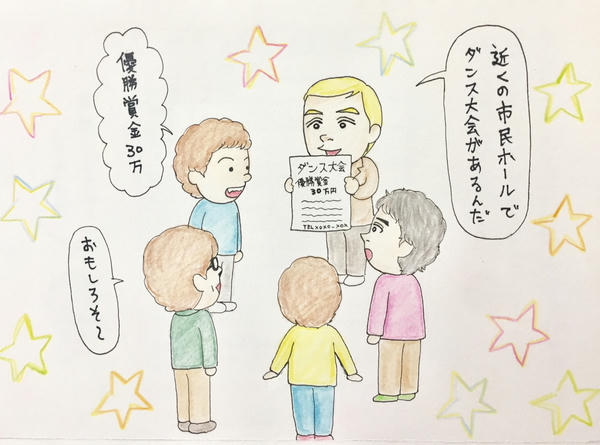 近くの市民ホールで
ダンス大会があるんだ
ダンス大会
優勝賞金
30万円
TEL XOXO-XOX
優勝賞金30万
おもしろそ〜